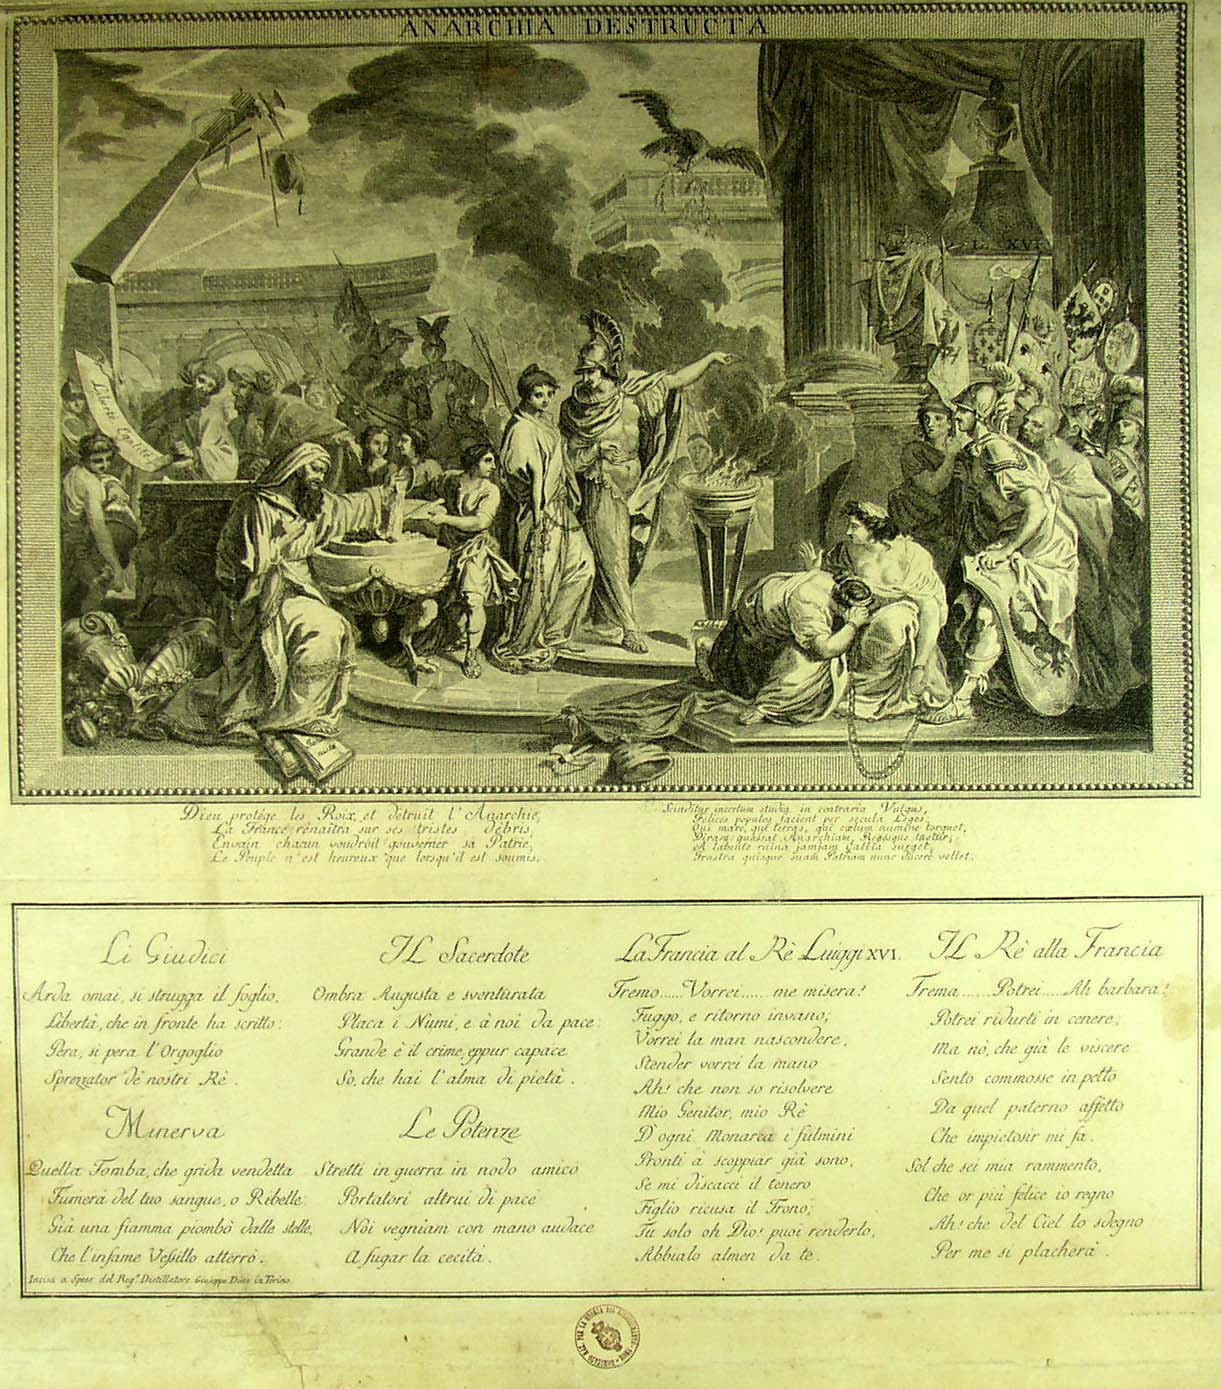 ANARCHIA DESTRUCTA
Liberté Egalité
L. XVI
Dieu protége les Roix, et détruit l'Anarchie,
La France rénaîtra sur ses tristes débris,
Envain chacun voudroit gouverner sa Patrie,
Le Peuple n'est heureux que lorsqu'il est soumis.
Scinditur incertum studia in contraria Vulgus,
Felices populos facient per secula Leges.
Qui mare, qui terras, qui cœlum numine torquet,
Diram quassat Anarchiam, Regesque tuetur;
A labente ruina jamjam Gallia surget;
Frustra quisque suam Patriam nunc ducere vellet.
Li Giudici
Arda omai, si strugga il foglio,
Libertà, che in fronte ha scritto:
Pèra, si pera l'Orgoglio
Sprezzator de nostri Rè.
IL Sacerdote
Ombra Augusta e sventurata
Placa i Numi, e à noi da pace:
Grande è il crime, eppur capace
So, che hai l'alma di pietà.
Minerva
Quella Tomba, che grida vendetta
Fumerà del tuo sangue, o Ribelle
Già una fiamma piombò dalle stelle,
Che l'infame Vessillo atterrò.
Le Potenze
Stretti in guerra in nodo amico
Portatori altrui di pace
Noi vegniam con mano audace
A fugar la cecità.
La Francia al Rè Luiggi XVI.
Tremo......Vorrei...... me misera!
Fuggo, e ritorno invano;
Vorrei la man nascondere,
Stender vorrei la mano
Ah! che non so risolvere
Mio Genitor, mio Rè
D'ogni Monarca i fulmini
Pronti à scoppiar già sono,
Se mi discacci il tenero
Figlio ricusa il Trono;
Tu solo oh Dio! puoi renderlo,
Abbialo almen da te.
IL Rè alla Francia
Trema........Potrei.....Ah barbara!
Potrei ridurti in cenere;
Ma nò, che già le viscere
Sento commosse in petto
Da quel paterno affetto
Che impietosir mi fa.
Sol che sei mia rammento,
Che or più felice io regno
Ah! che del Ciel lo sdegno
Per me si placherà.
Incisa a Spese del Reg.º Distillatore Giuseppe Dico in Torino